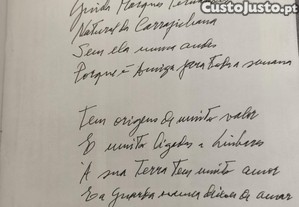 CustoJusto.pt
Natural de Carrapichana
Sem ela nunca andes
Porque é Amiga para toda a semana
Tem origens de muito valor
E muito ligada a Linhares
A sua Terra tem muito amor
E a Guarda nunca deixou de amar